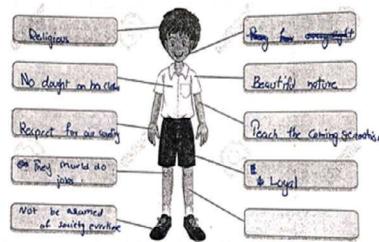 Religious
No dought on his
Respect for our society
They should do
jobs
Not be ashamed
of society
Beautiful nature
Teach the Coming generation
Loyal